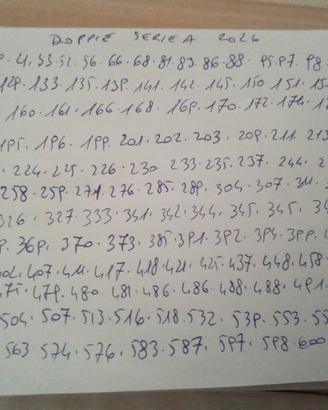 DOPPIE SERIE A 2024
41. 33. 52. 56. 66. 68. 81. 83. 86. 88. 95. 97. 98.
129. 133. 135. 139. 141. 142. 145. 150. 151.
160. 161. 166. 168. 169. 170. 172. 174.
195. 196. 199. 201. 202. 203. 209. 211. 213
224. 225. 226. 230 233. 235. 237. 244.
258. 259. 271. 276. 285. 289. 304. 307. 311.
326. 327. 333. 341. 342. 344. 345. 345.
369. 370. 373. 385. 391. 392. 394. 399.
407. 411. 417. 418. 421. 425. 437. 448. 458.
475. 479. 480. 481. 486. 486. 488. 488. 491.
504. 507. 513. 516. 518. 532. 539. 553. 55
563. 574. 576. 583. 587. 597. 598. 600